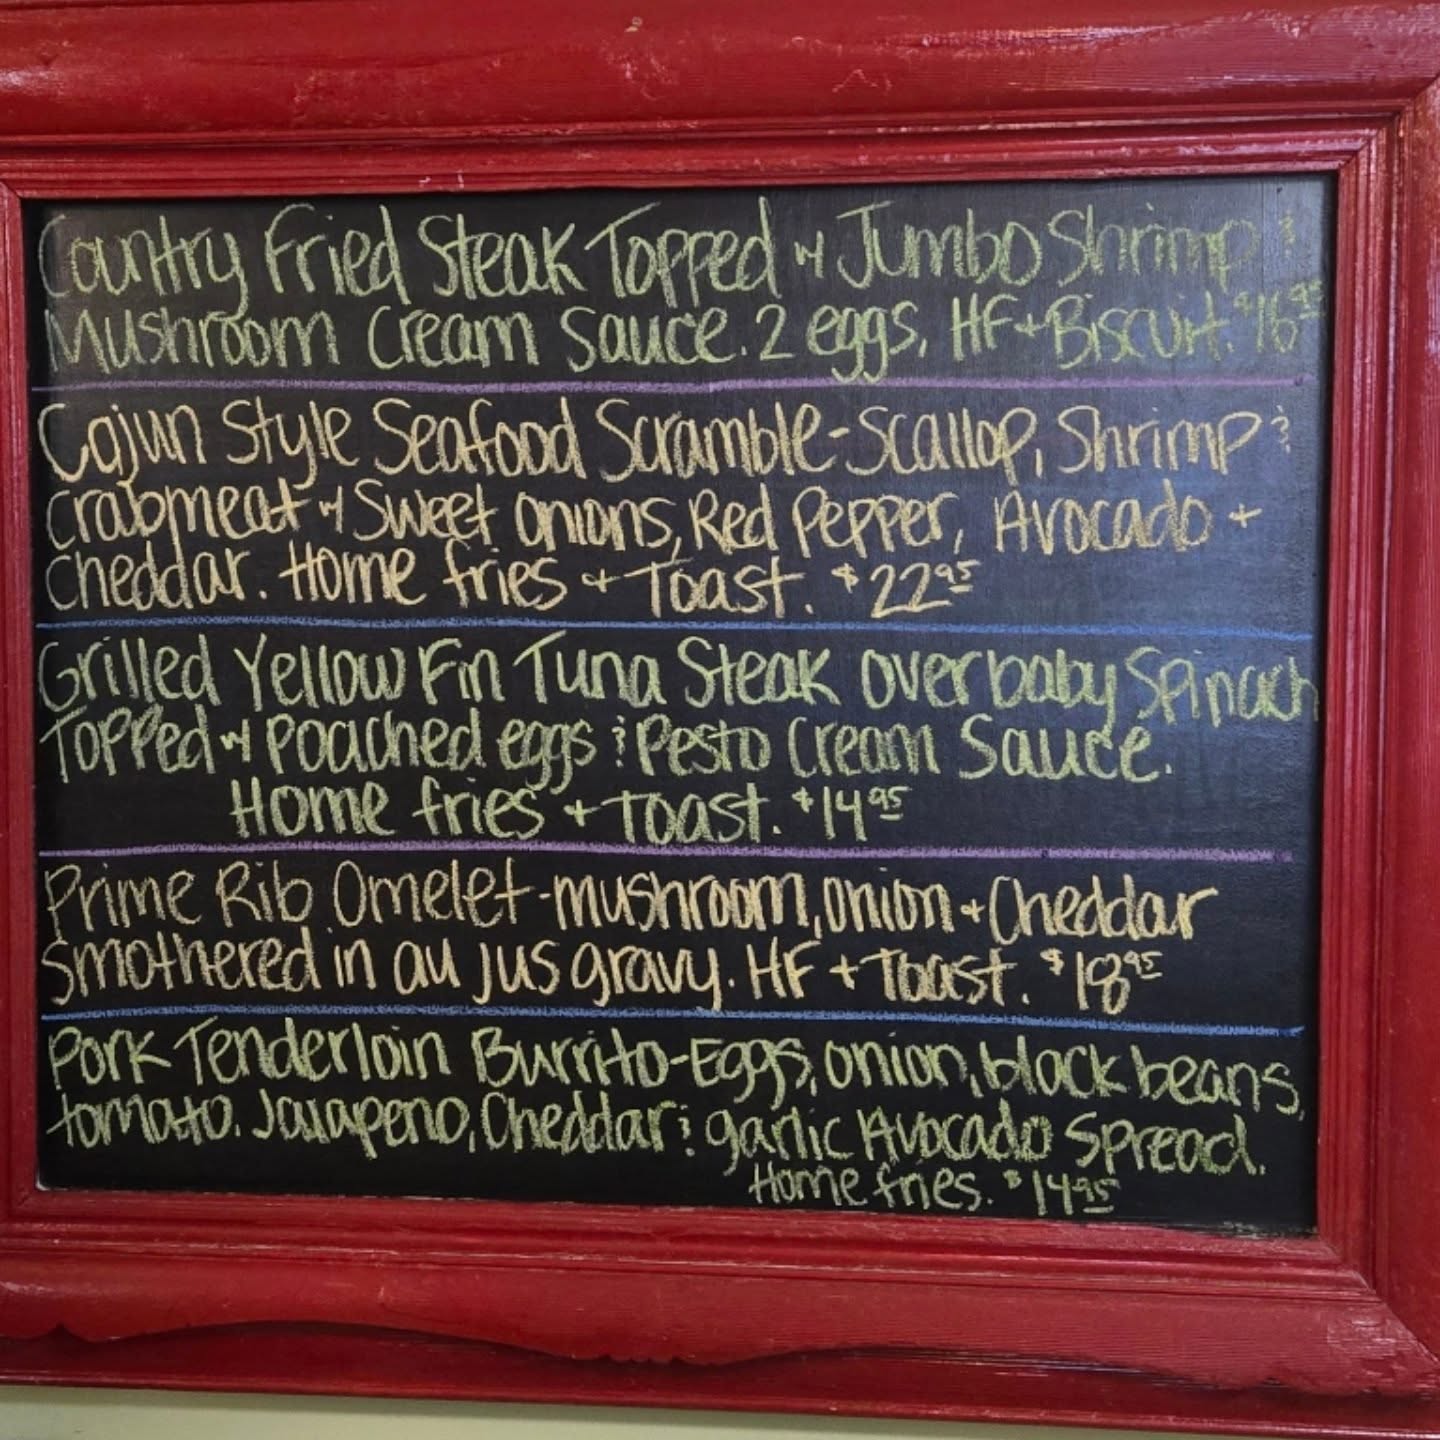 Country Fried Steak Topped w/ Jumbo Shrimp &
Mushroom Cream Sauce. 2 eggs, HF + Biscuit. $16.95
Cajun Style Seafood Scramble - Scallop, Shrimp &
Crabmeat w/ Sweet Onions, Red Pepper, Avocado +
Cheddar. Home fries + Toast. $22.95
Grilled Yellow Fin Tuna Steak over baby Spinach
Topped w/ Poached eggs & Pesto Cream Sauce.
Home fries + Toast. $14.95
Prime Rib Omelet - mushroom, onion + Cheddar
Smothered in au jus gravy. HF + Toast. $18.95
Pork Tenderloin Burrito - Eggs, onion, black beans,
tomato, Jalapeno, Cheddar & garlic Avocado Spread.
Home fries. $14.95